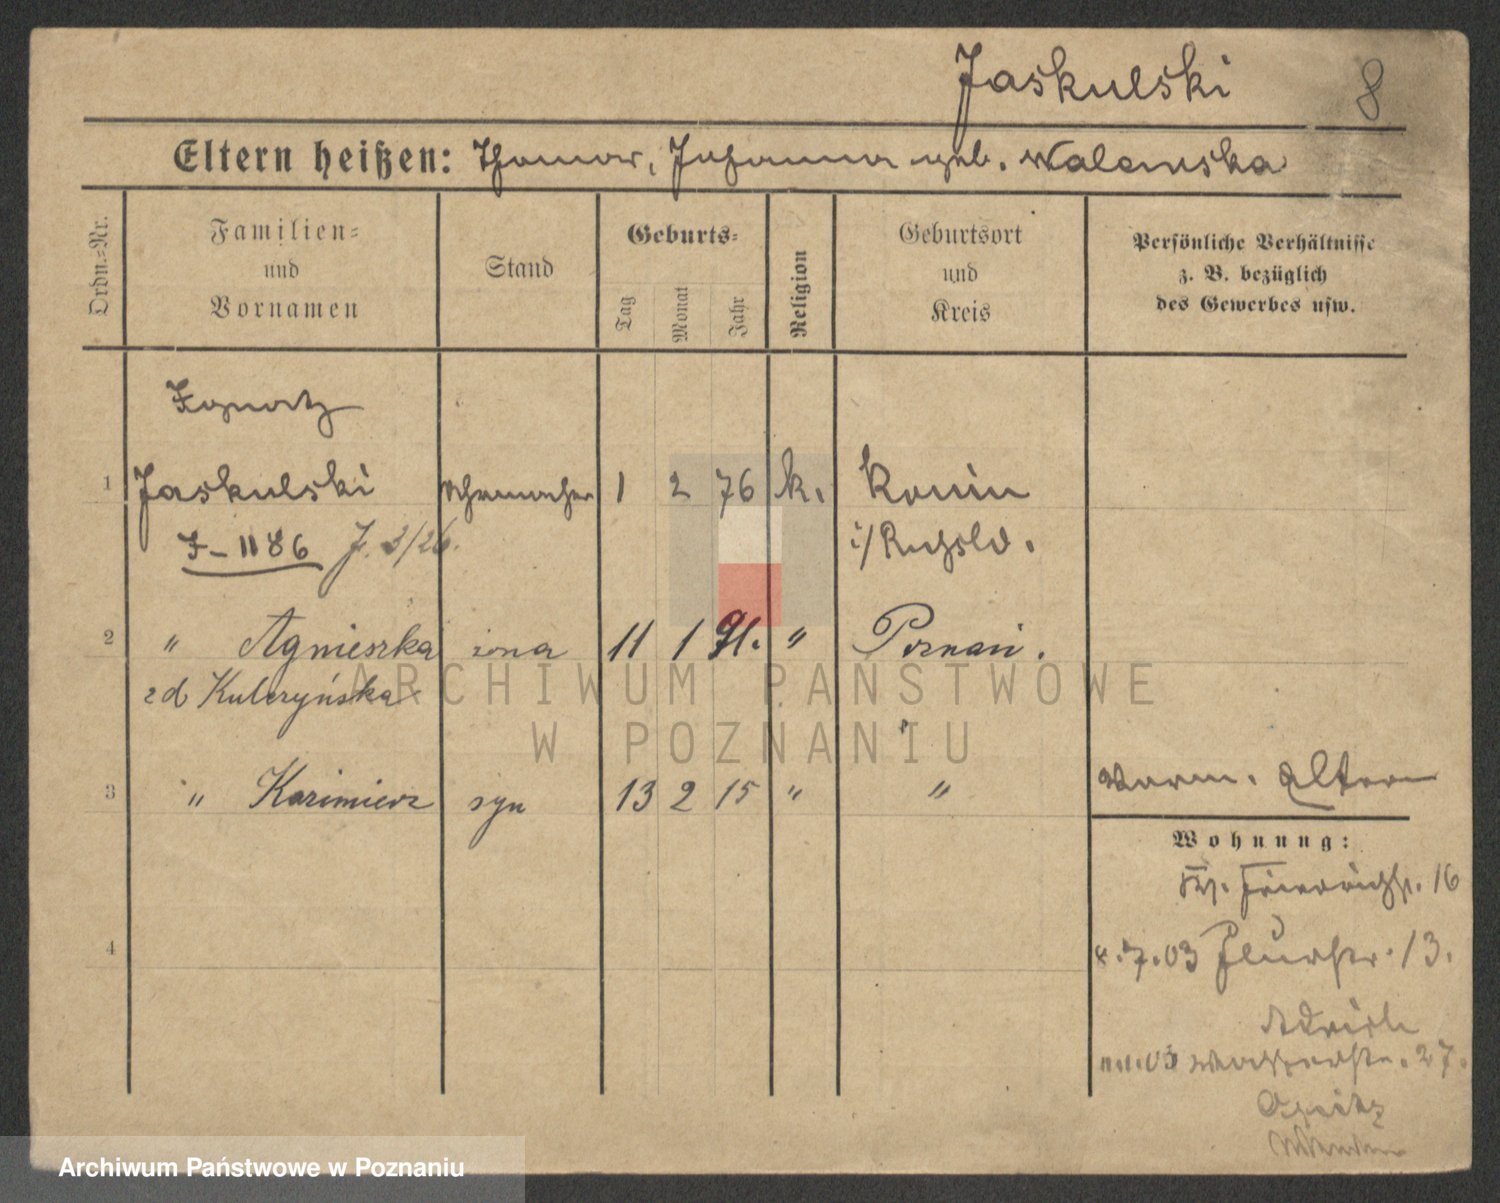 Jaskulski 8
Eltern heißen: Thomas, Johanna geb. Walenska
Ordn.=Nr.
Familien=
und
Vornamen
Stand
Geburts=
Tag
Monat
Jahr
Religion
Geburtsort
und
Kreis
Persönliche Verhältnisse
z. B. bezüglich
des Gewerbes usw.
Ignatz
1 Jaskulski Uhrmacher 1 2 76 k. Konin
I-1186 J. 3/26. i/Rußld.
2 " Agnieszka żona 11 1 91. " Poznań.
zd Kulczyńska
3 " Kazimierz syn 13 2 15 " "
4
Eltern
Wohnung:
16
4.7.03 13.
03 27.
ARCHIWUM PAŃSTWOWE
W POZNANIU
Archiwum Państwowe w Poznaniu